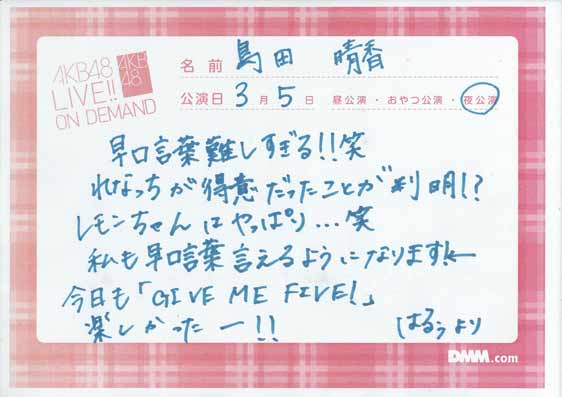 AKB48
LIVE!!
ON DEMAND
AKB
48
名前 島田 晴香
公演日 3月5日 昼公演・おやつ公演・夜公演
早口言葉難しすぎる!!笑
れなっちが得意だったことが判明!?
レモンちゃんはやっぱり...笑
私も早口言葉言えるようになります!←
今日も「GIVE ME FIVE!」
楽しかったー!!
はるぅより
DMM.com